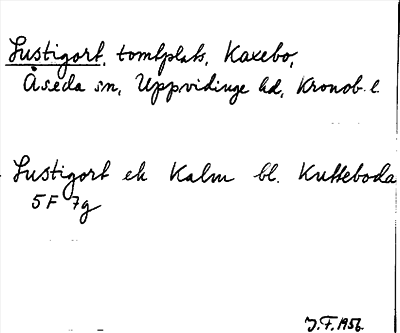 Lustigort, tomtplats, Kaxebo,
Åseda sn, Uppvidinge hd, Kronob. l.
Lustigort ek Kalm bl. Kulleboda
5F 7g
J.F. 1956